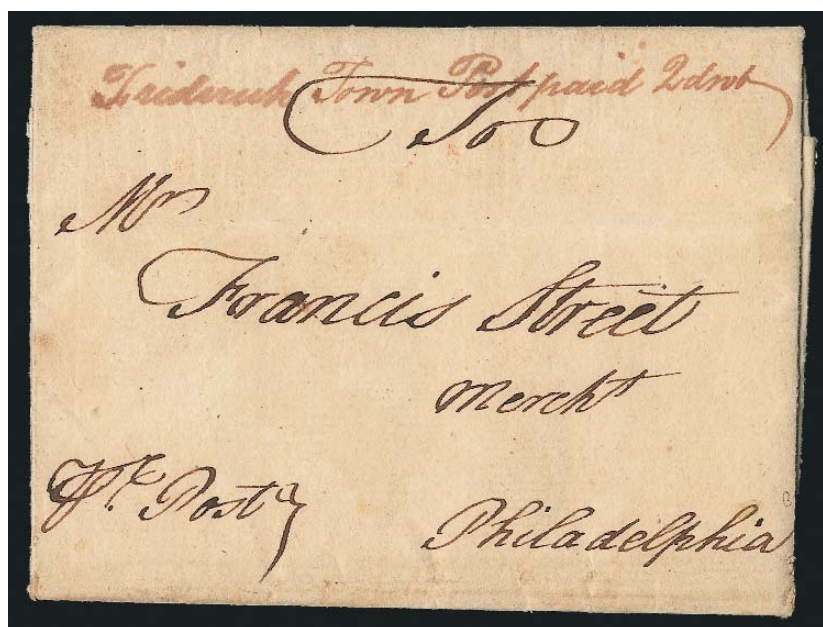 Friderick Town Post paid 2 dwt
To
Mr
Francis Street
Mercht
Pr. Post
Philadelphia